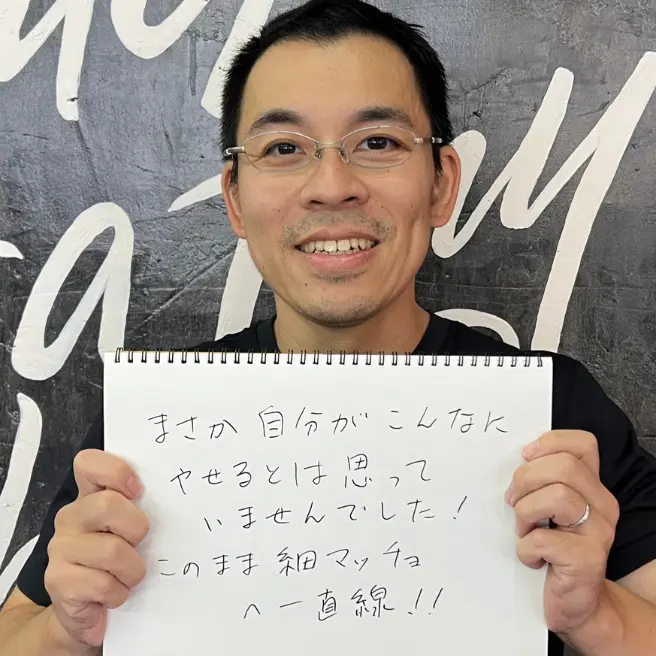 まさか自分がこんなに
やせるとは思って
いませんでした！
このまま細マッチョ
へ一直線！！